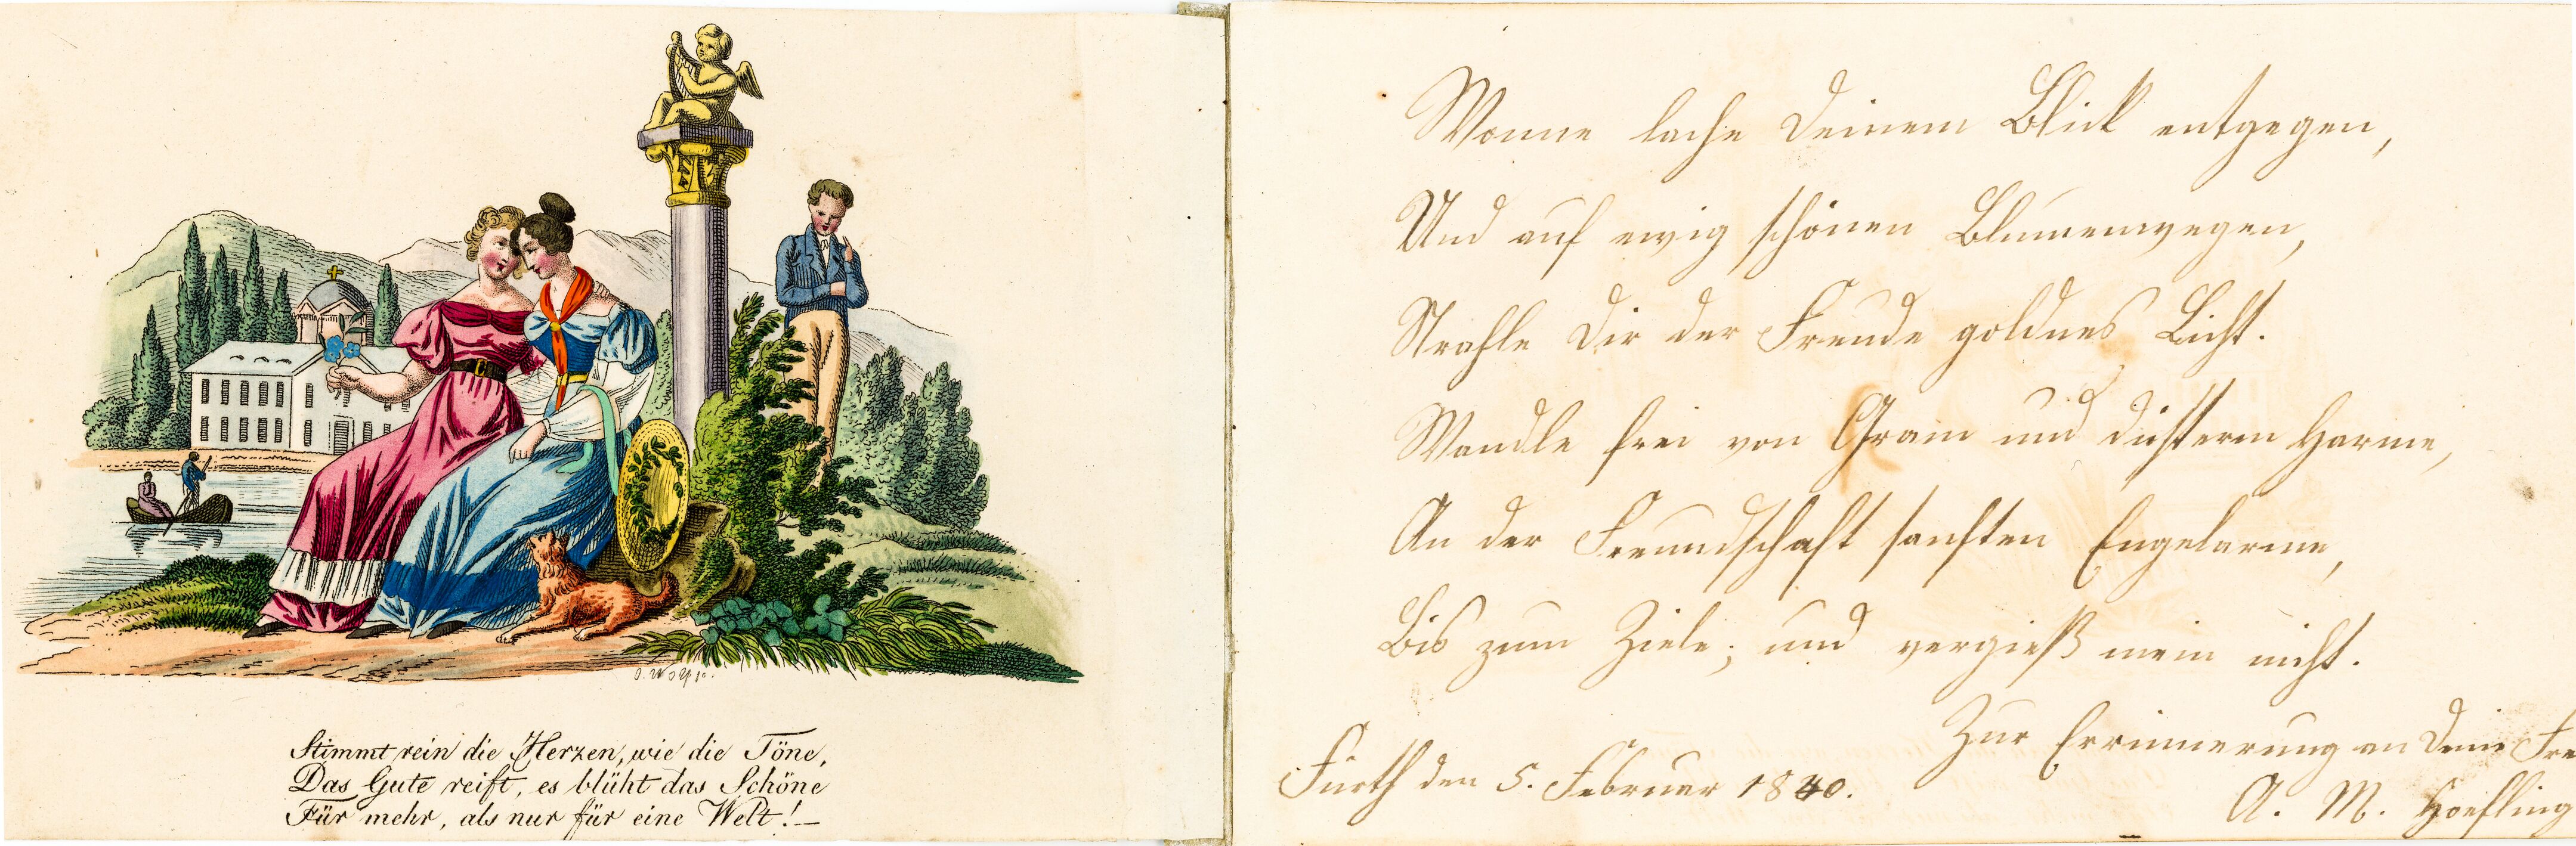 J. Wolf sc.
Stimmt rein die Herzen, wie die Töne,
Das Gute reift, es blüht das Schöne
Für mehr, als nur für eine Welt! —
Wonne lache Deinem Blick entgegen,
Und auf ewig schönen Blumenwegen,
Strahle Dir der Freude goldnes Licht.
Wandle frei von Gram und düsterm Harme,
An der Freundschaft sanften Engelarme,
Bis zum Ziele; und vergieß mein nicht.
Zur Errinnerung an Deine Fre
Fürth den 5. Februar 1840.
A. M. Hoefling